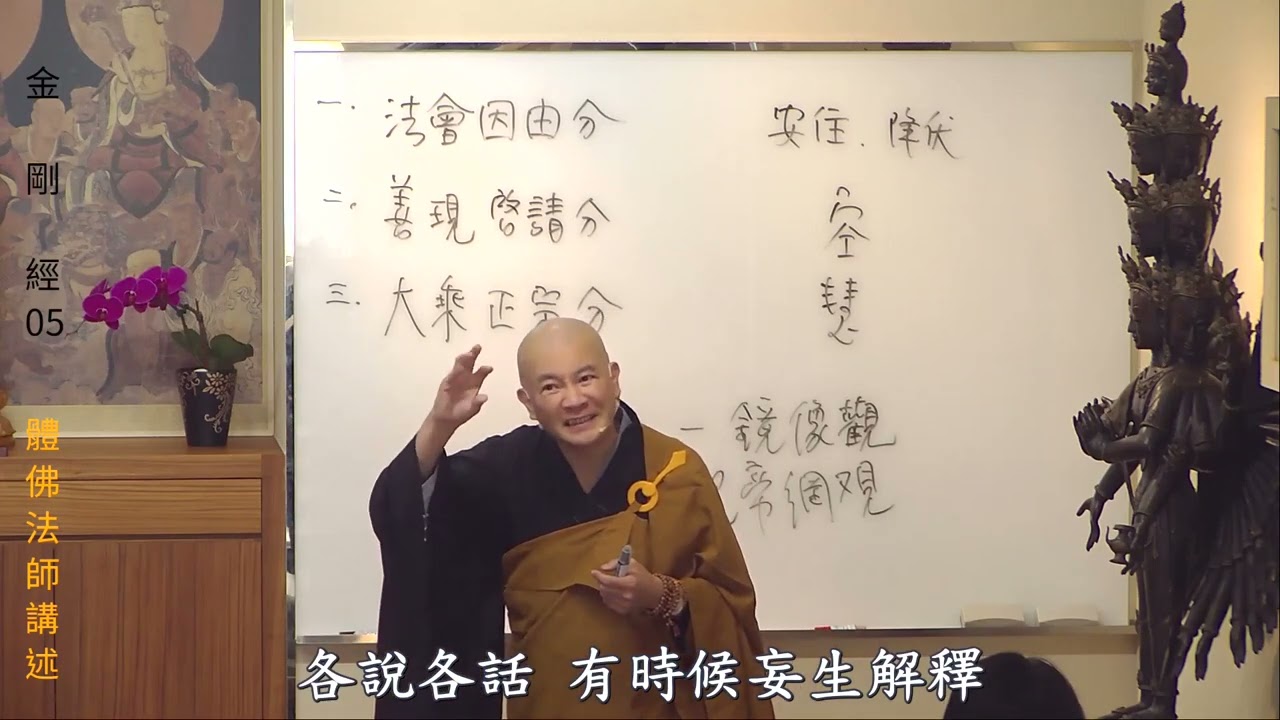 金剛經05
體佛法師講述
一. 法會因由分
二. 善現啓請分
三. 大乘正宗分
安住. 降伏
空
慧
一 鏡像觀
帝網观
各說各話 有時候妄生解釋